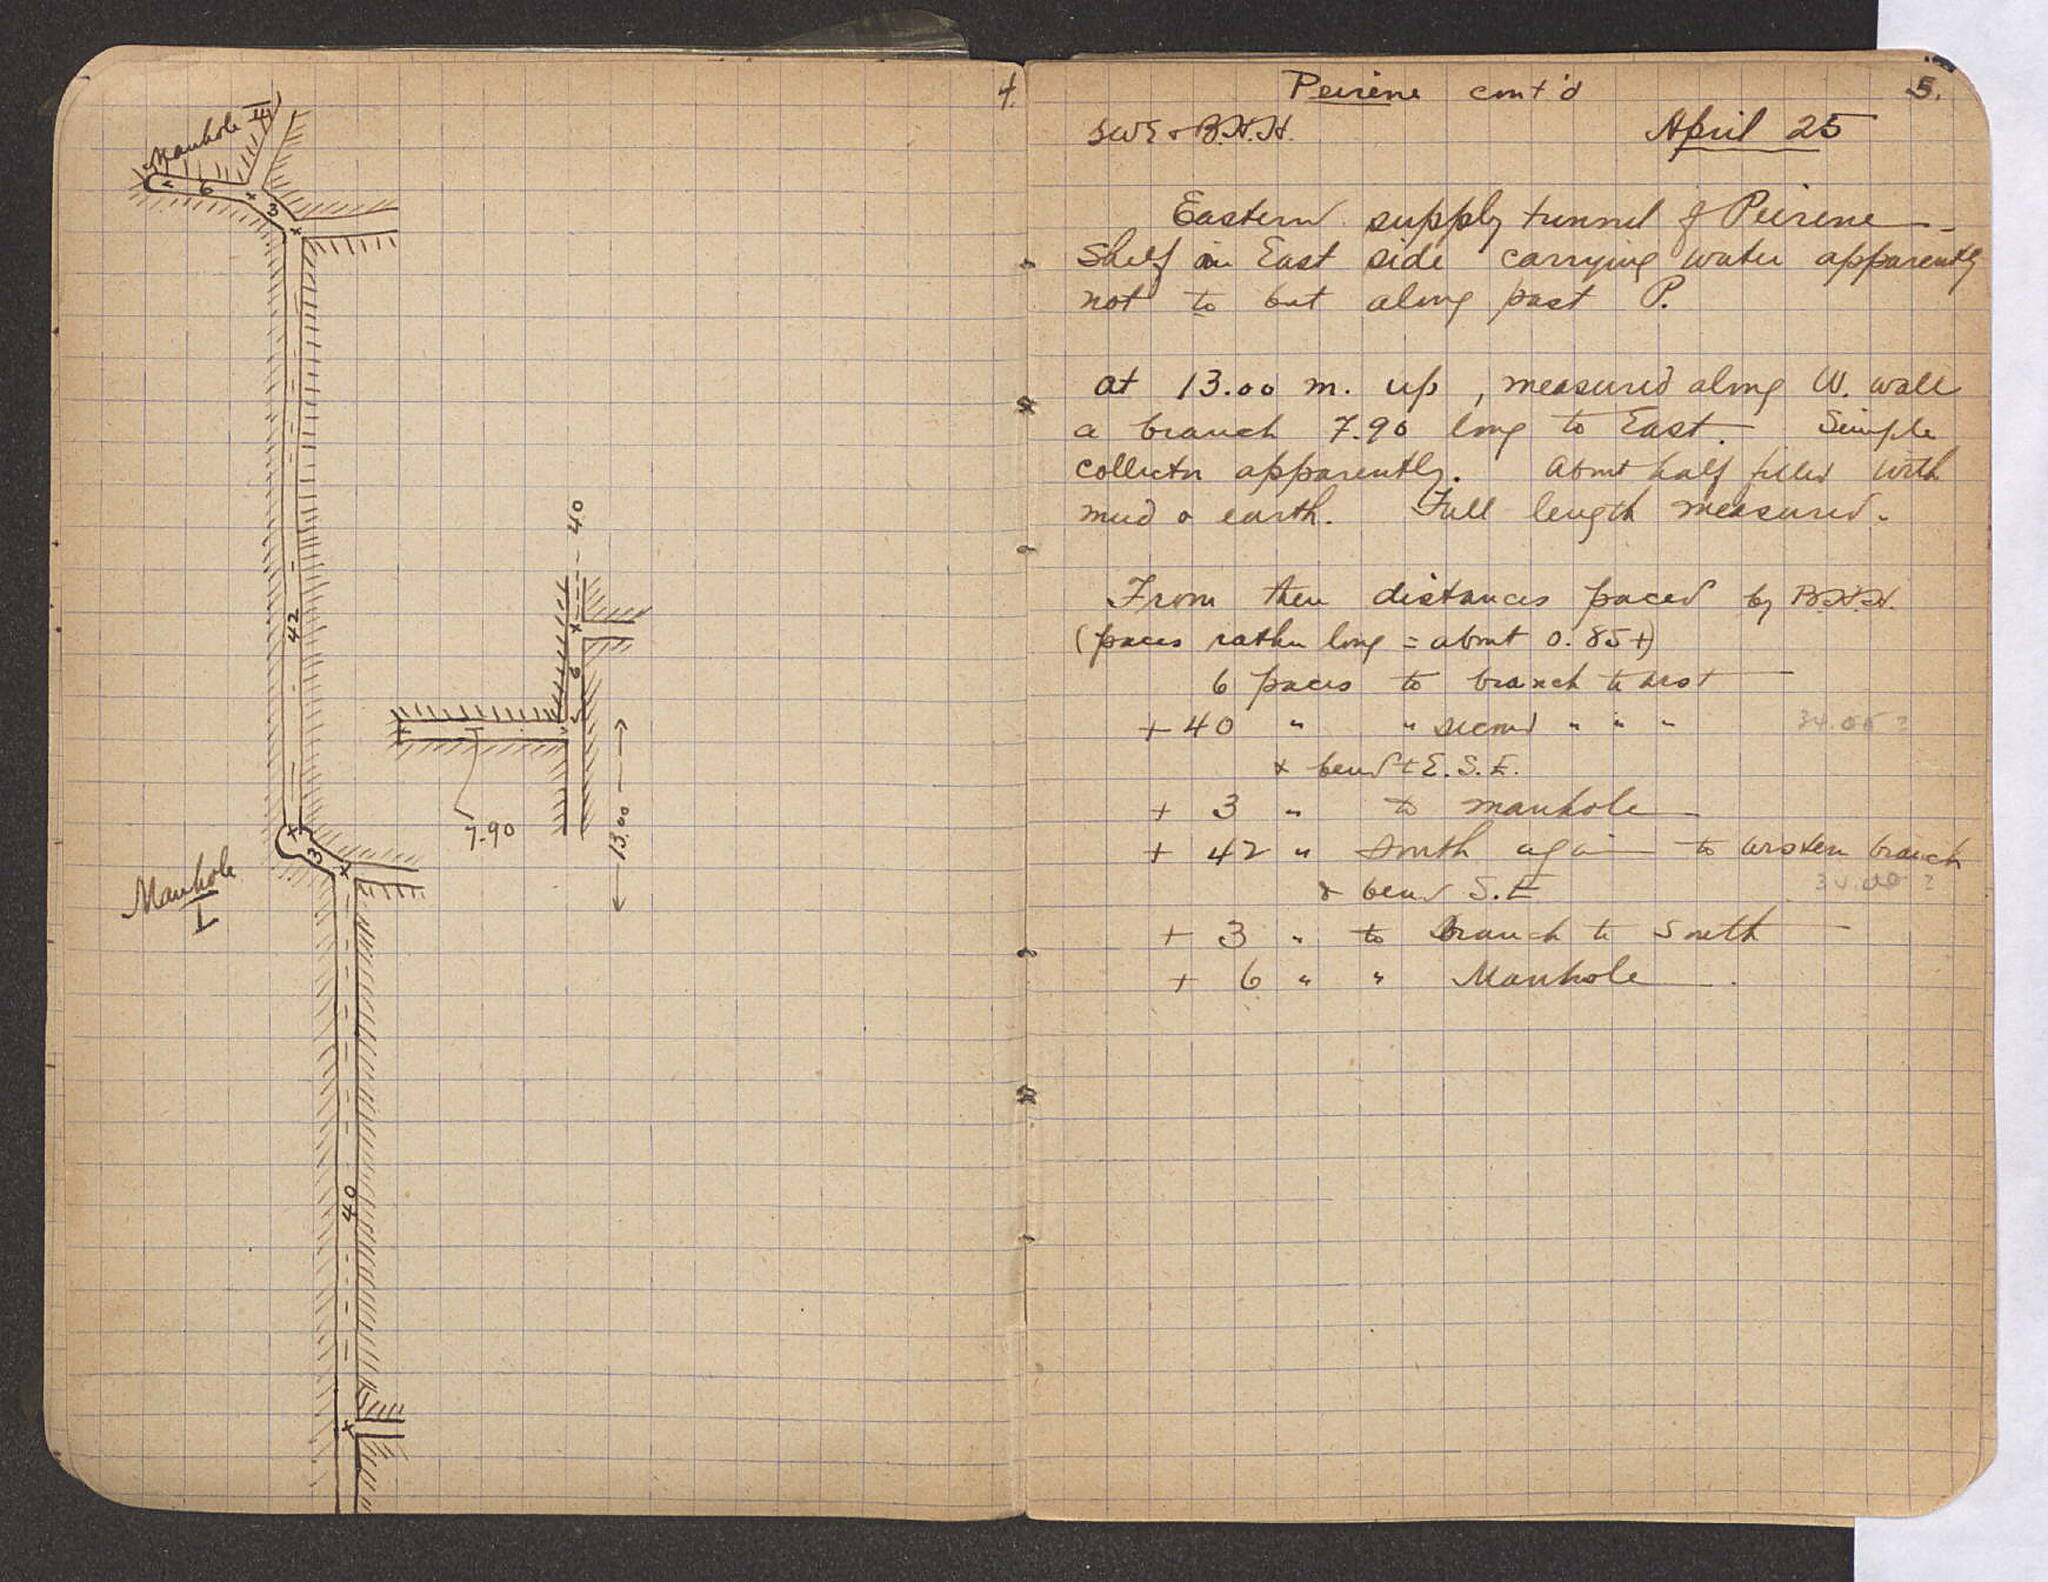 4.
Manhole III
6
3
42
40
6
5
7.90
13.00
3
Manhole
I
40
5.
Peirene cont'd
SWE & B.H.H. April 25
Eastern supply tunnel of Peirene —
Shelf on East side carrying water apparently
not to but along past P.
at 13.00 m. up, measured along W. wall
a branch 7.90 long to East. Simple
collector apparently. About half filled with
mud & earth. Full length measured.
From then distances paced by B.H.H.
(paces rather long = about 0.85+)
6 paces to branch to west —
+ 40 " " second " " " 34.00?
& bend to E.S.E.
+ 3 " to manhole —
+ 42 " South again — to western branch
& bend S.E. 34.00?
+ 3 " to branch to South —
+ 6 " " Manhole —.